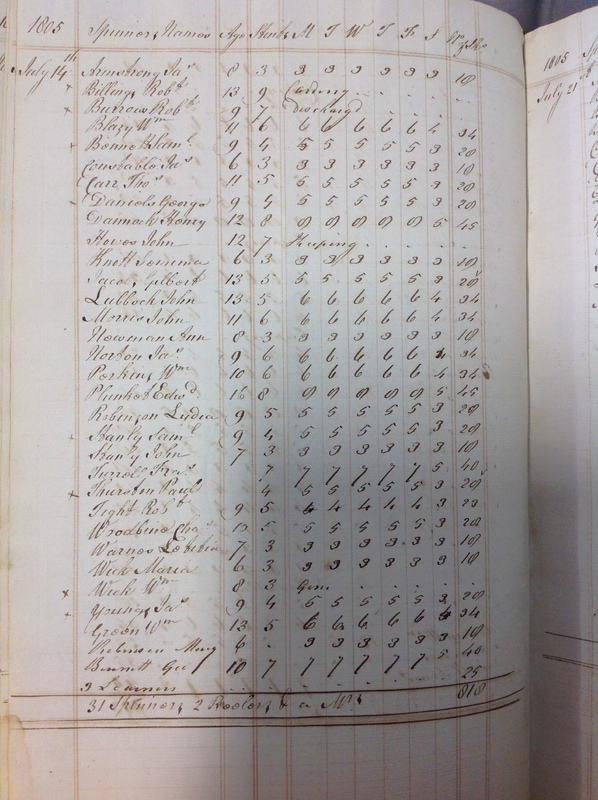 1805 Spinners Names Age Stints M T W T F S No of Sks
July 14th Armstrong Jas 8 3 3 3 3 3 3 3 18
Billing Robt 13 9 Cardery . . . . .
Burrows Robt 9 7 Discharg'd . . . .
Blazy Wm 11 6 6 6 6 6 6 4 34
Bonner Saml 9 4 5 5 5 5 5 3 28
Constable Jas 6 3 3 3 3 3 3 3 18
Carr Thos 11 5 5 5 5 5 5 3 28
Daniels George 9 4 5 5 5 5 5 3 28
Dannock Henry 12 8 8 8 8 8 8 5 45
Howes John 12 7 Keeping . . . .
Knott Jemima 6 3 3 3 3 3 3 3 18
Jacos Gilbert 13 5 5 5 5 5 5 3 28
Lubbock John 13 5 6 6 6 6 6 4 34
Morris John 11 6 6 6 6 6 6 4 34
Newman Ann 8 3 3 3 3 3 3 3 18
Norton Jas 9 6 6 6 6 6 6 4 34
Perkins Wm 10 6 6 6 6 6 6 4 34
Plunket Edwd 16 8 8 8 8 8 8 5 45
Robinson Lydia 9 5 5 5 5 5 5 3 28
Stanly Saml 9 4 5 5 5 5 5 3 28
Stanly John 7 3 3 3 3 3 3 3 18
Turrell Fras 7 7 7 7 7 5 40
Thurston Paul 4 5 5 5 5 5 3 28
Tight Robt 9 5 4 4 4 4 4 3 23
Woodbine Chas 13 5 5 5 5 5 5 3 28
Warnes Lætitia 7 3 3 3 3 3 3 3 18
Wick Maria 6 3 3 3 3 3 3 3 18
Wick Wm 8 3 . . . . .
Youngs Jas 9 4 5 5 5 5 5 3 28
Green Wm 13 5 6 6 6 6 6 4 34
Robinson Mary 6 . 3 3 3 3 3 3 18
Bennett Geo 10 7 7 7 7 7 7 5 40
3 Learners . . . . . . 25
31 Spinners, 2 Reelers & a Mrs 818
1805
July 21